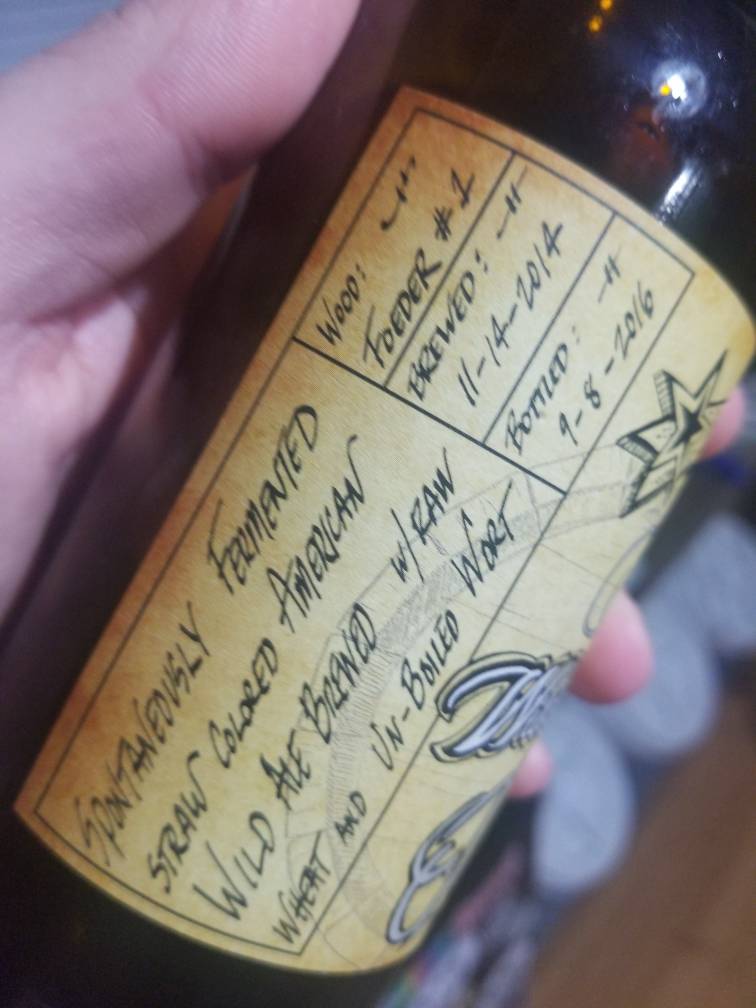 WOOD:
FOEDER #1
BREWED:
11-14-2014
BOTTLED:
9-8-2016
SPONTANEOUSLY FERMENTED
STRAW COLORED AMERICAN
WILD ALE BREWED W/ RAW
WHEAT AND UN-BOILED WORT